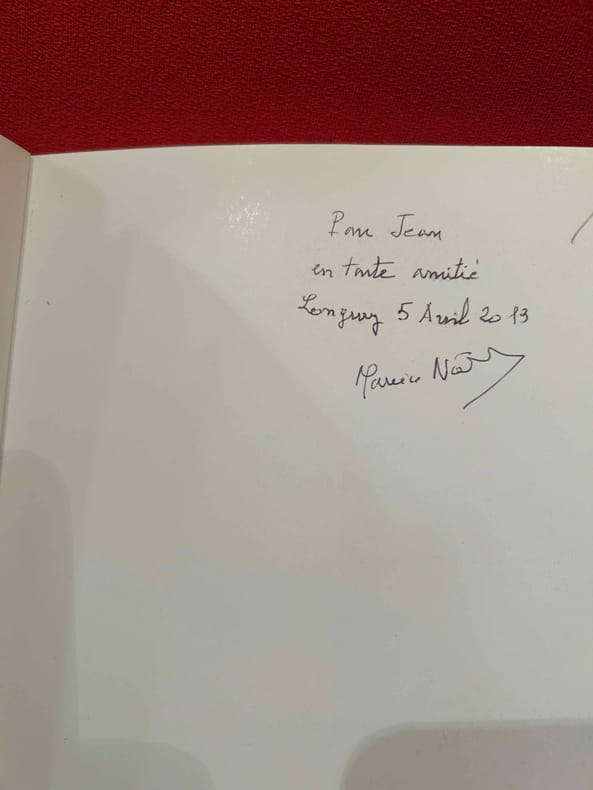 Pour Jean
en toute amitié
Longwy 5 Avril 2013
Maurice Noël